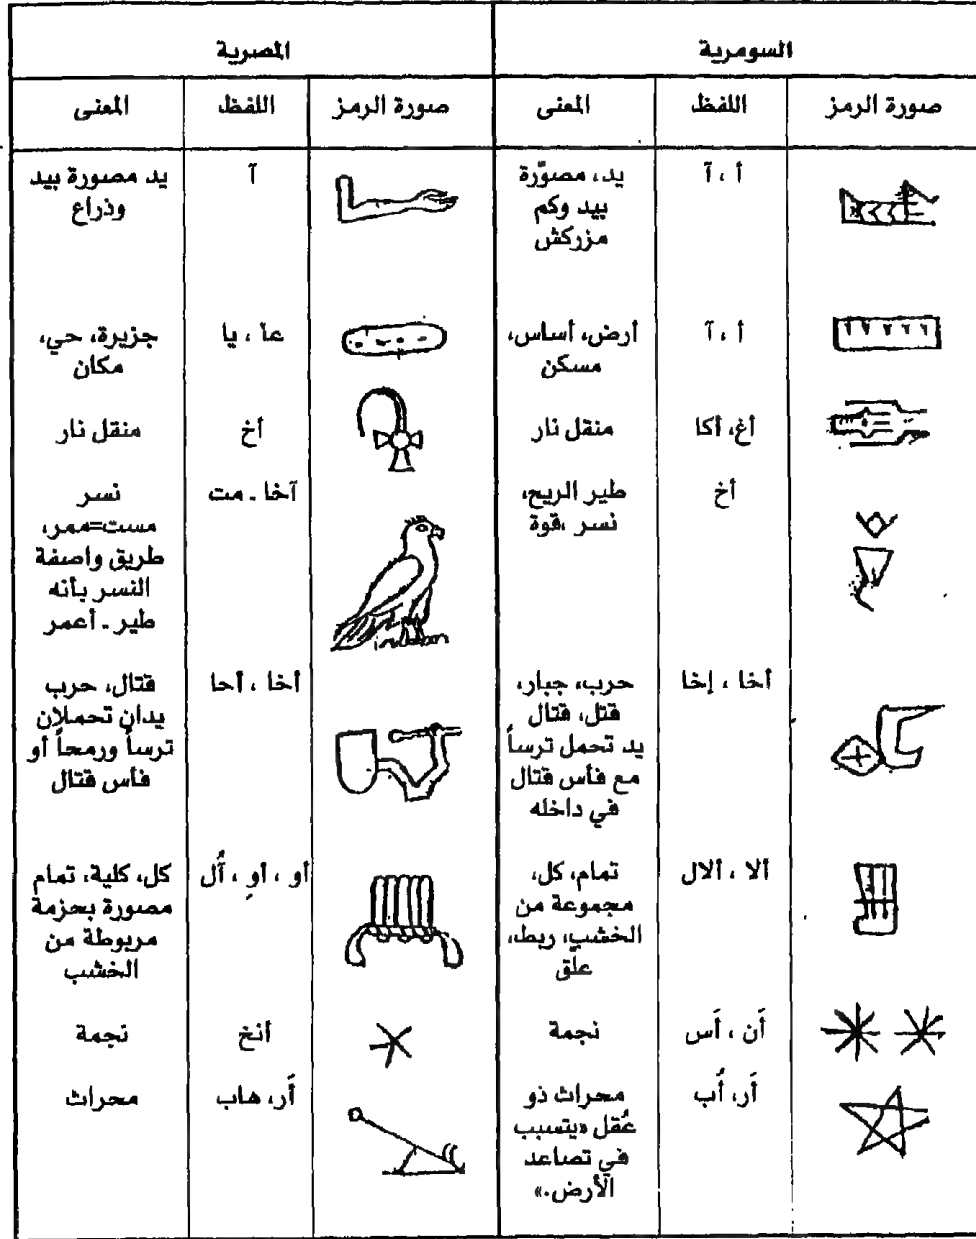 السومرية
المصرية
صورة الرمز
اللفظ
المعنى
صورة الرمز
اللفظ
المعنى
أ ، آ
يد، مصوّرة
بيد وكم
مزركش
آ
يد مصورة بيد
وذراع
أ ، آ
أرض، أساس،
مسكن
عا ، يا
جزيرة، حي،
مكان
أغ، أكا
منقل نار
أخ
منقل نار
أخ
طير الريح،
نسر ،قوة
آخا - مت
نسر
مست=ممر،
طريق واصفة
النسر بأنه
طير - أعمر
أخا ، إخا
حرب، جبار،
قتل، قتال
يد تحمل ترساً
مع فأس قتال
في داخله
أخا ، أحا
قتال، حرب
يدان تحملان
ترساً ورمحاً أو
فأس قتال
ألا ، ألال
تمام، كل،
مجموعة من
الخشب، ربط،
علق
أو ، أوِ ، أُل
كل، كلية، تمام
مصورة بحزمة
مربوطة من
الخشب
أَن ، أَس
نجمة
أنخ
نجمة
أَر، أُب
محراث ذو
عُقل «يتسبب
في تصاعد
الأرض.»
أَر، هاب
محراث